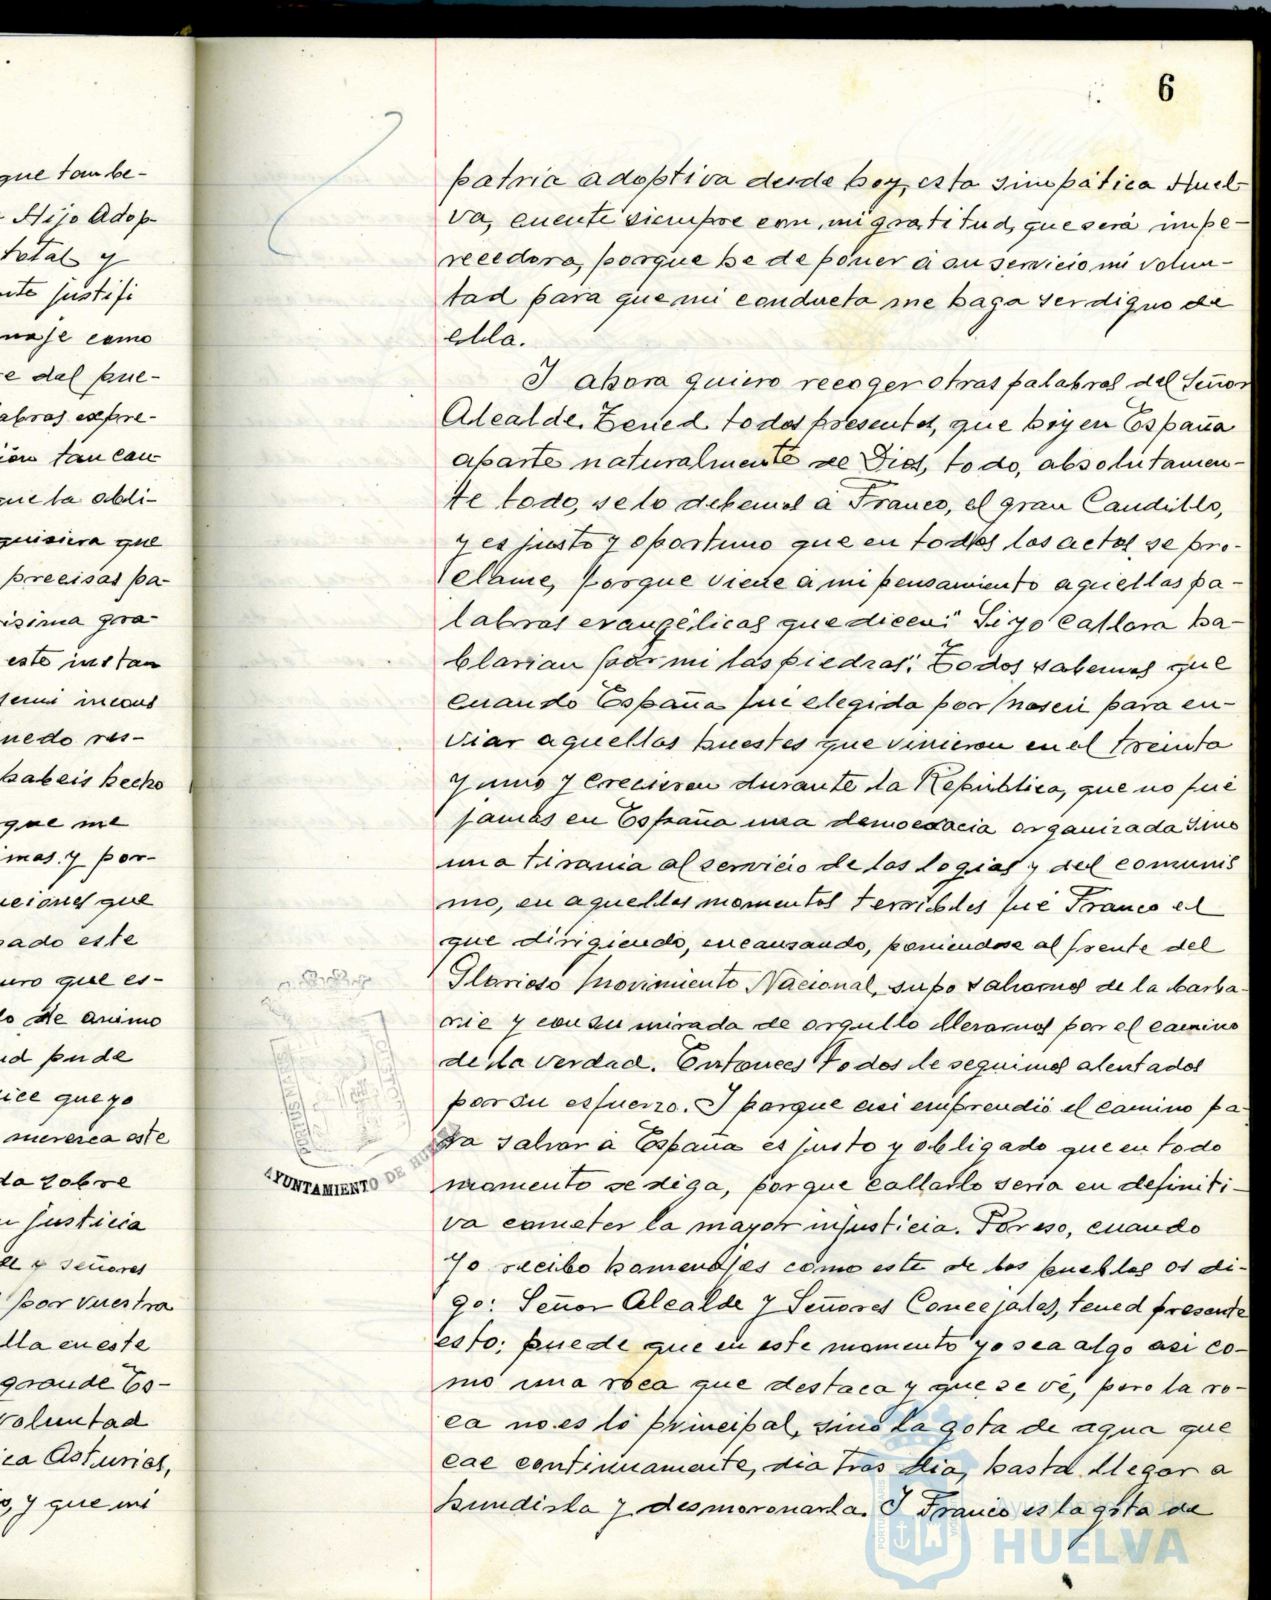 que tambe-
Hijo Adop-
total y
nte justifi
naje como
re del pue-
abras expre-
ión tan can-
que la obli-
quisiera que
precisas pa-
ísima gra-
este instan
semi incons
uedo res-
habeis hecho
que me
imas y por-
uciones que
pado este
uro que es-
lo de animo
ud pude
ice que yo
merezca este
da sobre
justicia
y señores
por vuestra
lla en este
grande Es-
voluntad
ica Asturias,
o, y que mi
6
patria adoptiva desde hoy, esta simpática Huel-
va, cuente siempre con mi gratitud, que será impe-
recedora, porque he de poner á su servicio mi volun-
tad para que mi conducta me haga ser digno de
ella.
Y ahora quiero recoger otras palabras del Señor
Alcalde. Tened todos presentes, que hoy en España
aparte naturalmente de Dios, todo, absolutamen-
te todo, se lo debemos á Franco, el gran Caudillo,
y es justo y oportuno que en todos los actos se pro-
clame, porque viene á mi pensamiento aquellas pa-
labras evangélicas que dicen: "Si yo callara ha-
blarian por mi las piedras". Todos sabemos que
cuando España fué elegida por Moscú para en-
viar aquellas huestes que vinieron en el treinta
y uno y crecieron durante la República, que no fué
jamás en España una democracia organizada sino
una tirania al servicio de las logias y del comunis
mo, en aquellos momentos terribles fué Franco el
que dirigiendo, encauzando, poniendose al frente del
Glorioso Movimiento Nacional, supo salvarnos de la barba-
rie y con su mirada de orgullo llevarnos por el camino
de la verdad. Entonces todos le seguimos alentados
por su esfuerzo. Y porque asi emprendió el camino pa-
ra salvar á España es justo y obligado que en todo
momento se diga, porque callarlo seria en definiti-
va cometer la mayor injusticia. Por eso, cuando
yo recibo homenajes como este de los pueblos os di-
go: Señor Alcalde y Señores Concejales, tened presente
esto; puede que en este momento yo sea algo asi co-
mo una roca que destaca y que se vé, pero la ro-
ca no es lo principal, sino la gota de agua que
cae continuamente, dia tras dia, hasta llegar a
hundirla y desmoronarla. Y Franco es la gota de
AYUNTAMIENTO DE HUELVA
Ayuntamiento de
HUELVA